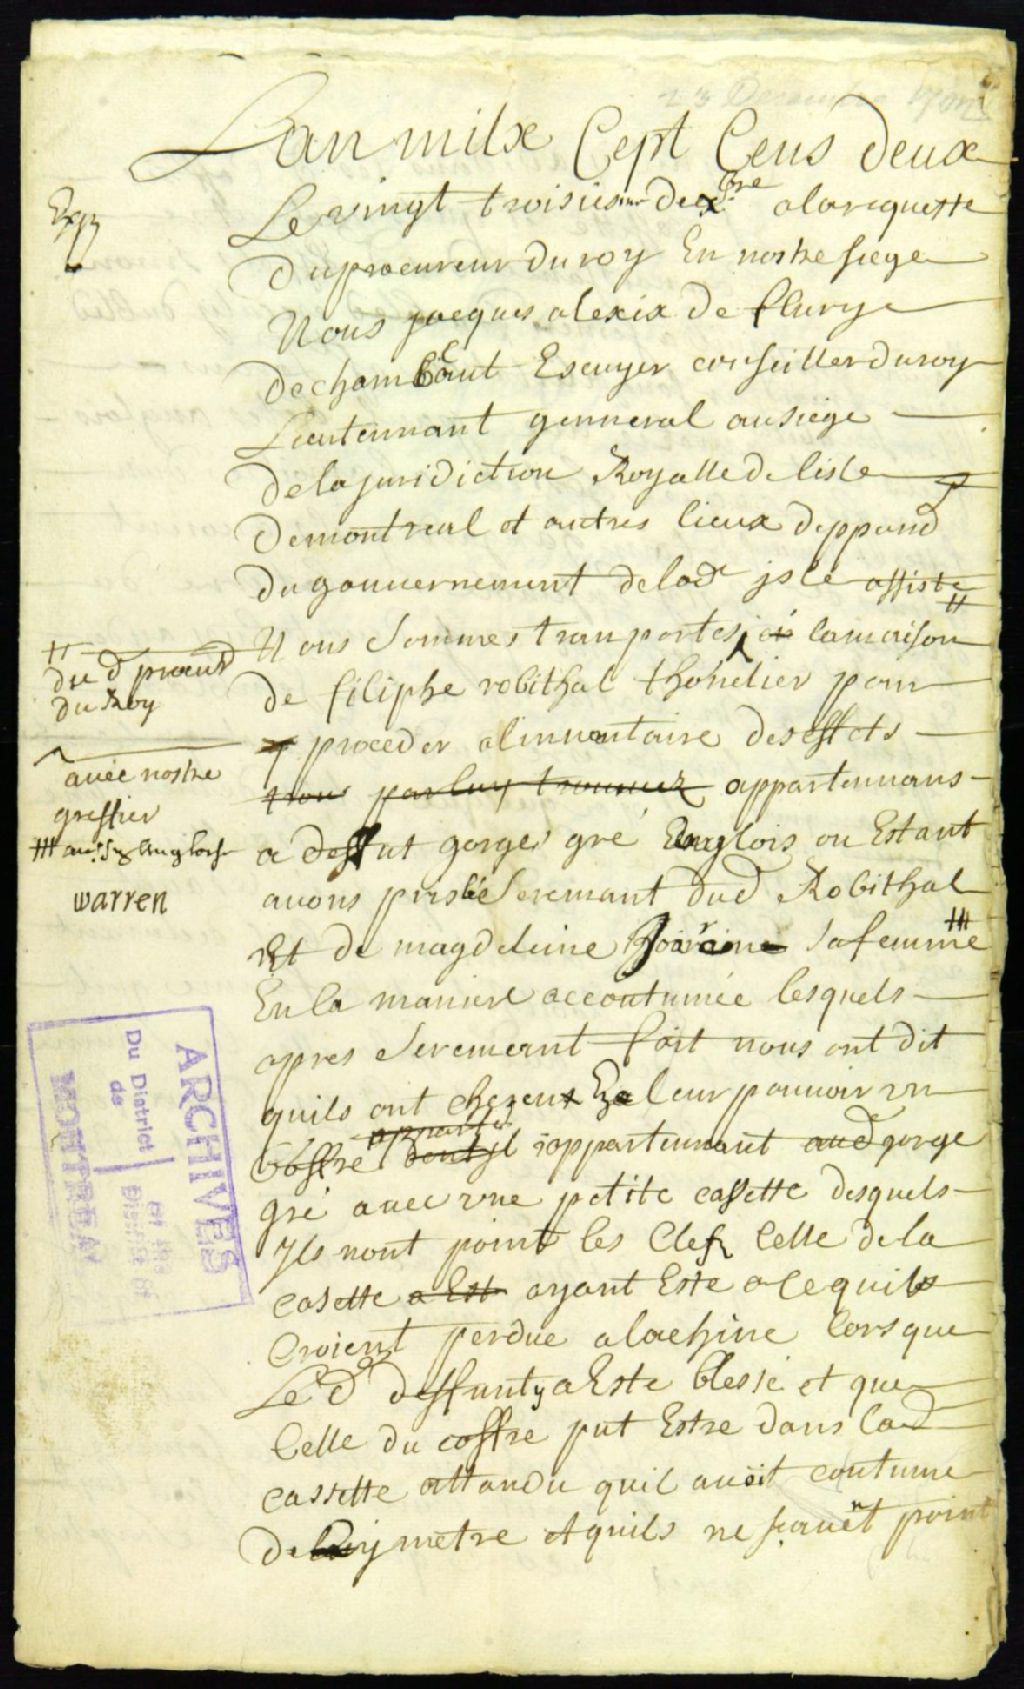 23 Decembre 1702
Lan milx Cept Cens deux
Le vingt troisiesme decbre alarequeste
Duprocureur du roy En nostre siege
Nous jacques alexix de fleury
dechambaut Escuyer conseiller duroy
Lieutennant genneral ausiege
delajuridiction Royalle de lisle
demontreal et autres lieux deppend
du gouuernement delad isle assiste
Nous Sommes transportes a lamaison
de filiphe robithal thonelier pour
y proceder alinuentaire des effets
trou par luy trouuez appartennans
a deffut gorge gré Englois ou Estant
auons pris le Seremant dud Robithal
Et de magdeleine safemme
En la maniere accoutumée lesquels
apres Serement fait nous ont dit
quils ont chezeux En leur pouuoir vn
appart
Coffre dont il appartennant aud gorge
gré auec vne petite cassette desquels
Ils nont point les Clefs Celle de la
casette a Est ayant Este a ce quils
Croient perdue alachine lors que
Le d deffunt y a Este blessé et que
Celle du coffre put Estre dans lad
cassette attandu quil auoit coutume
de luy metre et quils ne scauent point
Exp
dud procur
du Roy
auec nostre
greffier
warren
ARCHIVES
Du District
de
MONTREAL
of the
District of